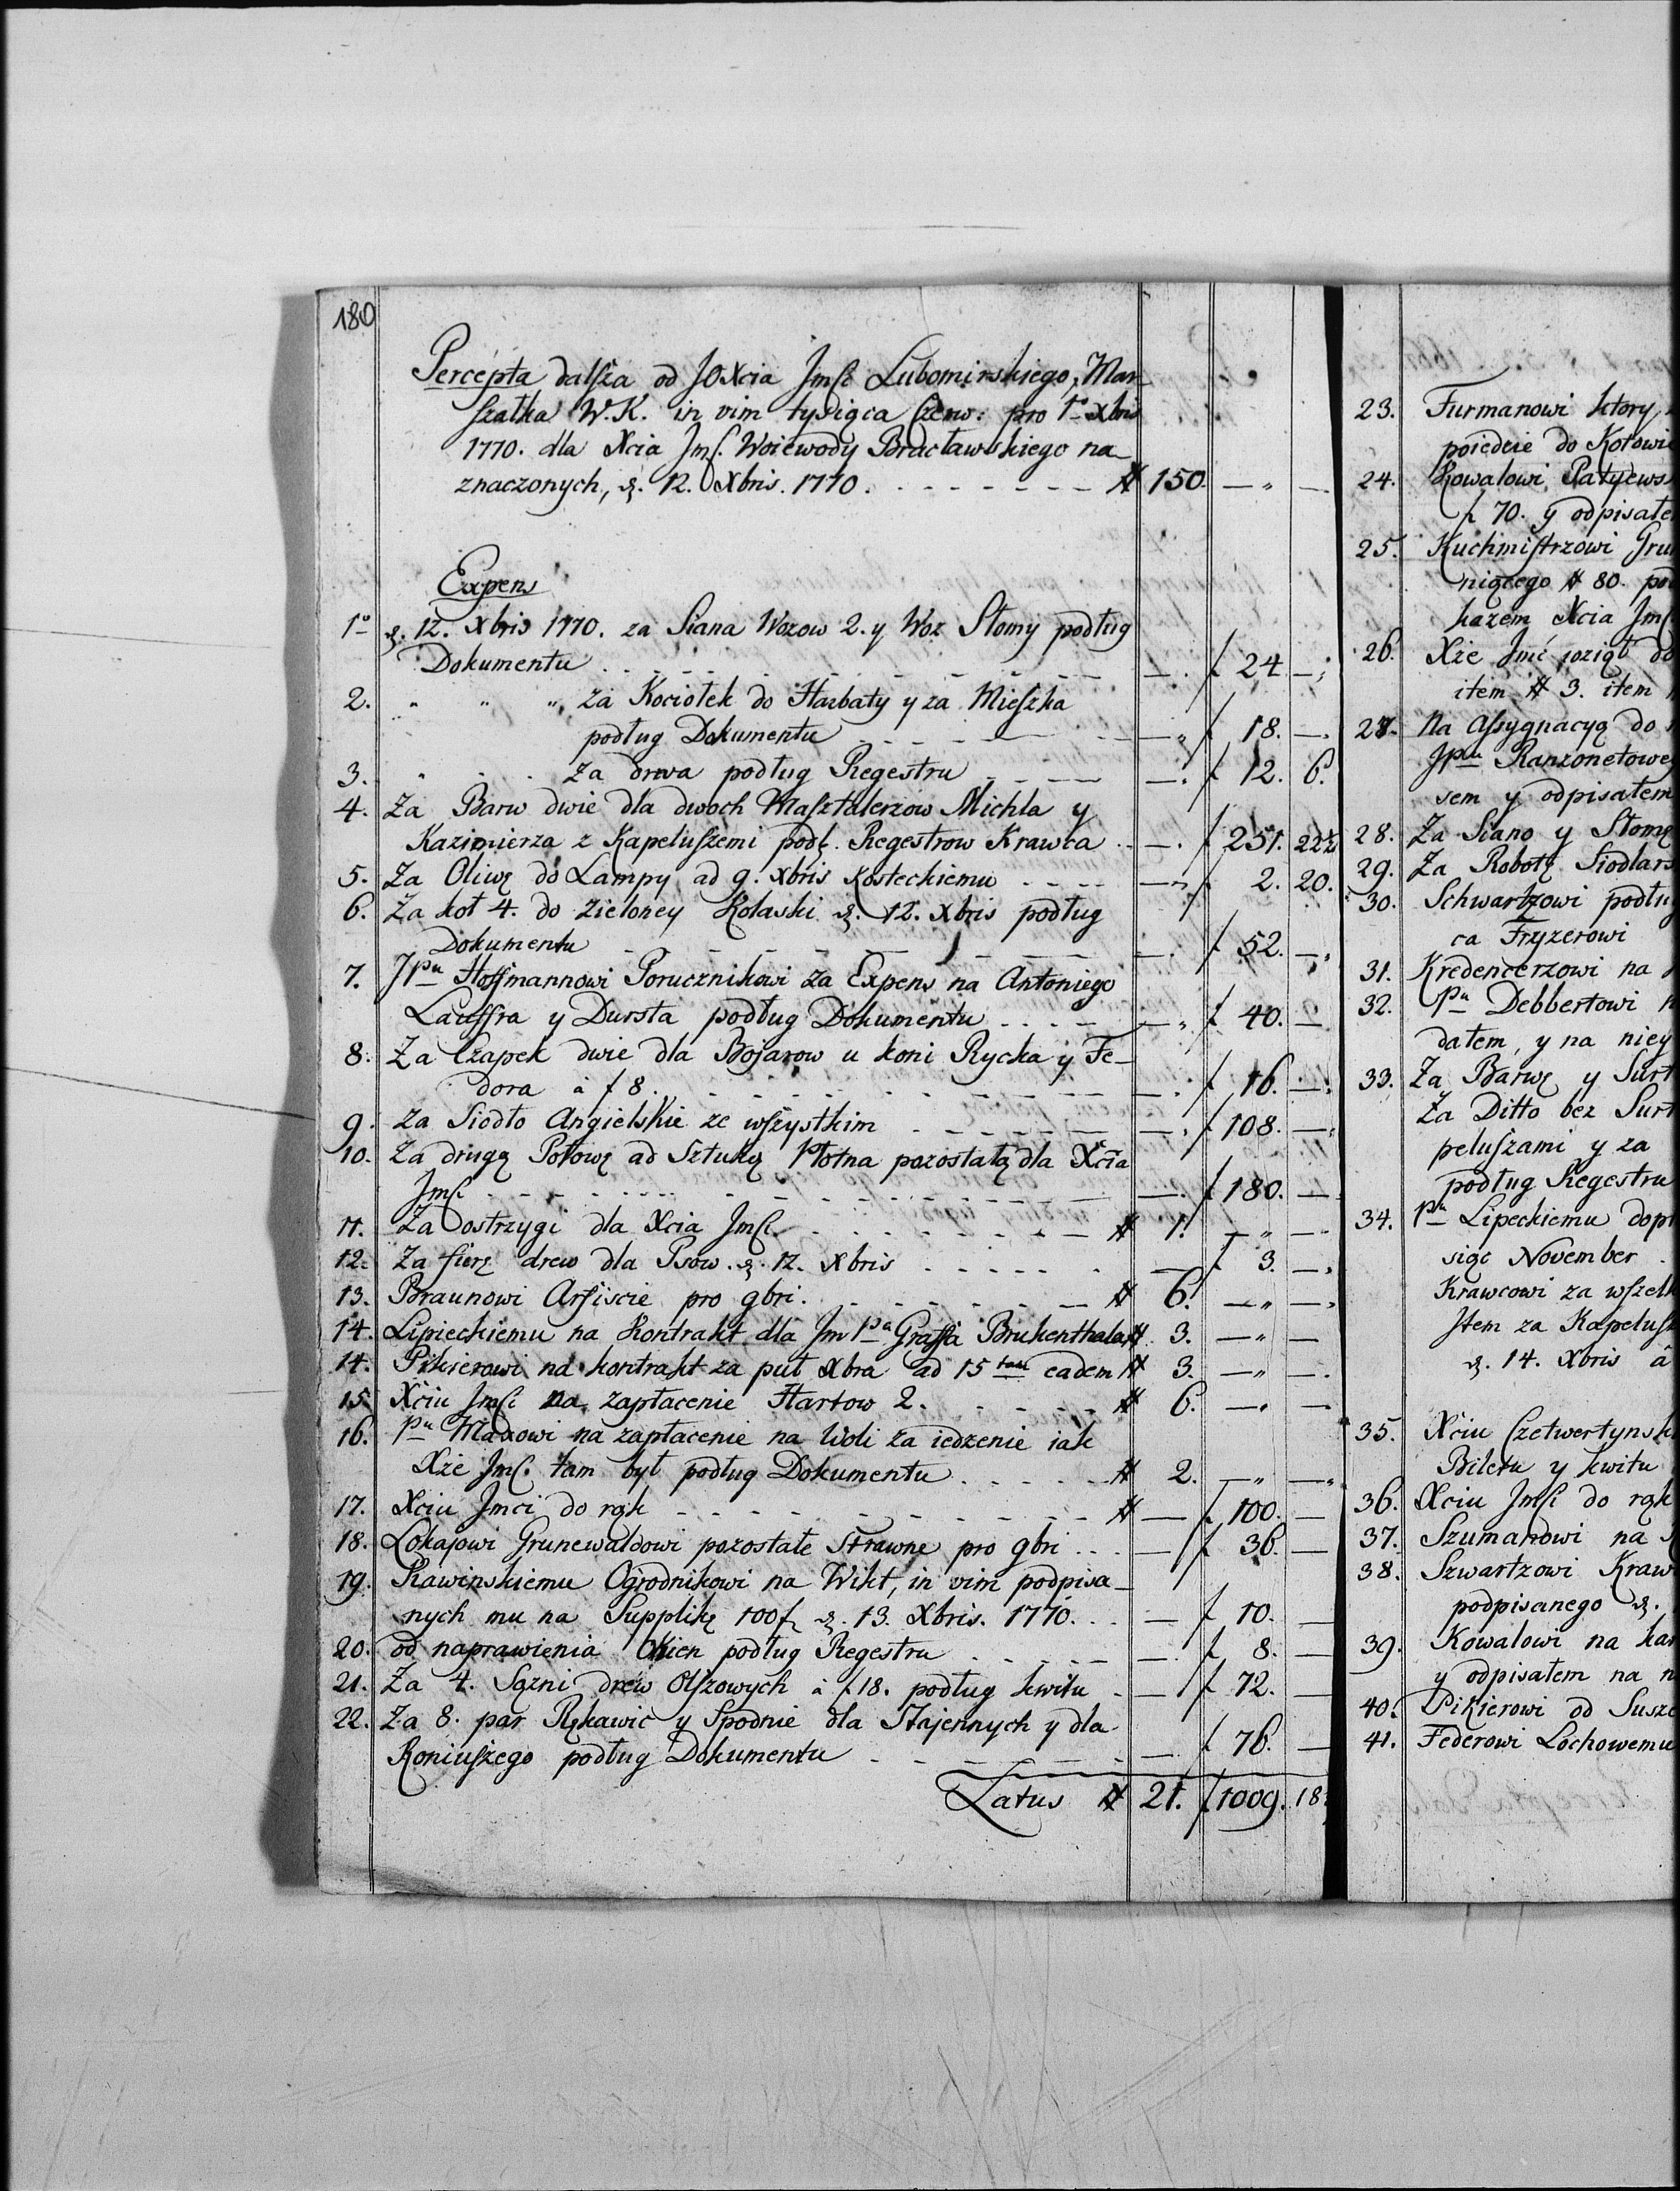 180
Percepta dalsza od JOXcia Jmści Lubomirskiego, Mar-
szałka W. K. in vim tysiąca Czerw: pro 1o Xbris
1770. dla Xcia Jmś. Woiewody Bracławskiego na-
znaczonych, d. 12. Xbris. 1770. # 150. — " —
Expens
1o d. 12. Xbris 1770. za Siana Wozow 2. y Woz Słomy podług
Dokumentu — . f 24 — .
2. " " " za Kociołek do Harbaty y za Mieszka
podług Dokumentu — " f 18. — .
3. " . . za drwa podług Regestru — . f 12. 6.
4. Za Barw dwie dla dwoch Masztalerzow Michla y
Kazimierza z Kapeluszemi podł. Regestrow Krawca — . f 251. 22½
5. Za Oliwę do Lampy ad 9. xbris Kosteckiemu — " f 2. 20.
6. Za koł 4. do Zieloney Kolaski d. 12. xbris podług
Dokumentu — . f 52. — .
7. JPu Hoffmannowi Porucznikowi za Expens na Antoniego
Lauffra y Dursta podług Dokumentu — " f 40. —
8. Za Czapek dwie dla Bojarow u koni Rycka y Fe-
dora à f 8. — . f 16. — .
9. Za Siodło Angielskie ze wszystkim — . f 108. — .
10. Za drugą Połowę ad Sztukę Płotna pozostałą dla Xcia
Jmści — . f 180. —
11. Za ostrzygi dla Xcia Jmści # 1. — " —
12. Za fierę drew dla Psow. d. 12. xbris — f 3. — .
13. Braunowi Arfiscie pro 9bri. # 6. — " — .
14. Lipieckiemu na Kontrakt dla Jm Pa Graffa Brukenthala # 3. — " —
14. Pikierowi na kontrakt za puł Xbra ad 15tam eadem # 3. — " — .
15. Xciu Jmści na zapłacenie Hartow 2. # 6. — " —
16. Pu Maxowi na zapłacenie na Woli za iedzenie iak
Xże Jmś. tam był podług Dokumentu # 2. — " — "
17. Xciu Jmci do rąk # — f 100. —
18. Lokajowi Grunewaldowi pozostałe Strawne pro 9bri — f 36. —
19. Rawinskiemu Ogrodnikowi na Wikt, in vim podpisa-
nych mu na Supplikę 100 f d. 13. Xbris. 1770. — f 10. —
20. od naprawienia Okien podług Regestru — . f 8. —
21. Za 4. Sązni drew Olszowych à f 18. podług kwitu — f 72. —
22. Za 8. par Rękawic y Spodnie dla Stajennych y dla
Koniuszego podług Dokumentu — . f 76. —
Latus # 21. f 1009. 18.
23. Furmanowi ktory
poiedzie do
24. Kowalowi
70. y odpisałe
25. Kuchmistrzowi Gru
niącego # 80. pod
kazem Xcia Jmś
26. Xże Jmć wziął do
item # 3. item
27. Na Assygnacyą do
JPu Ranzonetowey
sem y odpisałem
28. Za Siano y Słomę
29. Za Robotę Siodlars
30. Schwartzowi podług
ca Fryzerowi
31. Kredencerzowi na
32. Pu Debbertowi n
dałem, y na niey
33. Za Barwę y Surt
Za Ditto bez Surt
peluszami y za
podług Regestru
34. Pu Lipeckiemu dopr
siąc November
Krawcowi za wszelk
Item za Kapelusz
d. 14. Xbris à
35. Xciu Czetwertynsk
Biletu y kwitu
36. Xciu Jmści do rąk
37. Szumanowi na
38. Szwartzowi Kraw
podpisanego d.
39. Kowalowi na kar
y odpisałem na n
40. Pikierowi od Susze
41. Federowi Lochowemu